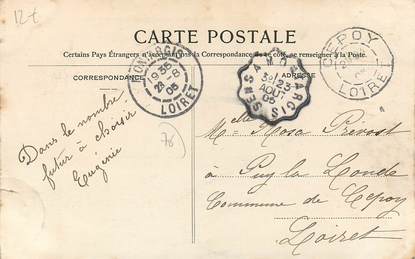 12 t
CARTE POSTALE
Certains Pays Étrangers n'acceptent pas la Correspondance de ce côté, se renseigner à la Poste.
CORRESPONDANCE
ADRESSE
MONTARGIS
19 35
23 - 8
05
LOIRET
SENS A MONTARGIS
23
AOUT
05
CEPOY
LOIRET
Dans le nombre
futur à choisir.
Eugénie
78
Melle Rosa Prévost
à Puy la Londe
Commune de Cepoy
Loiret